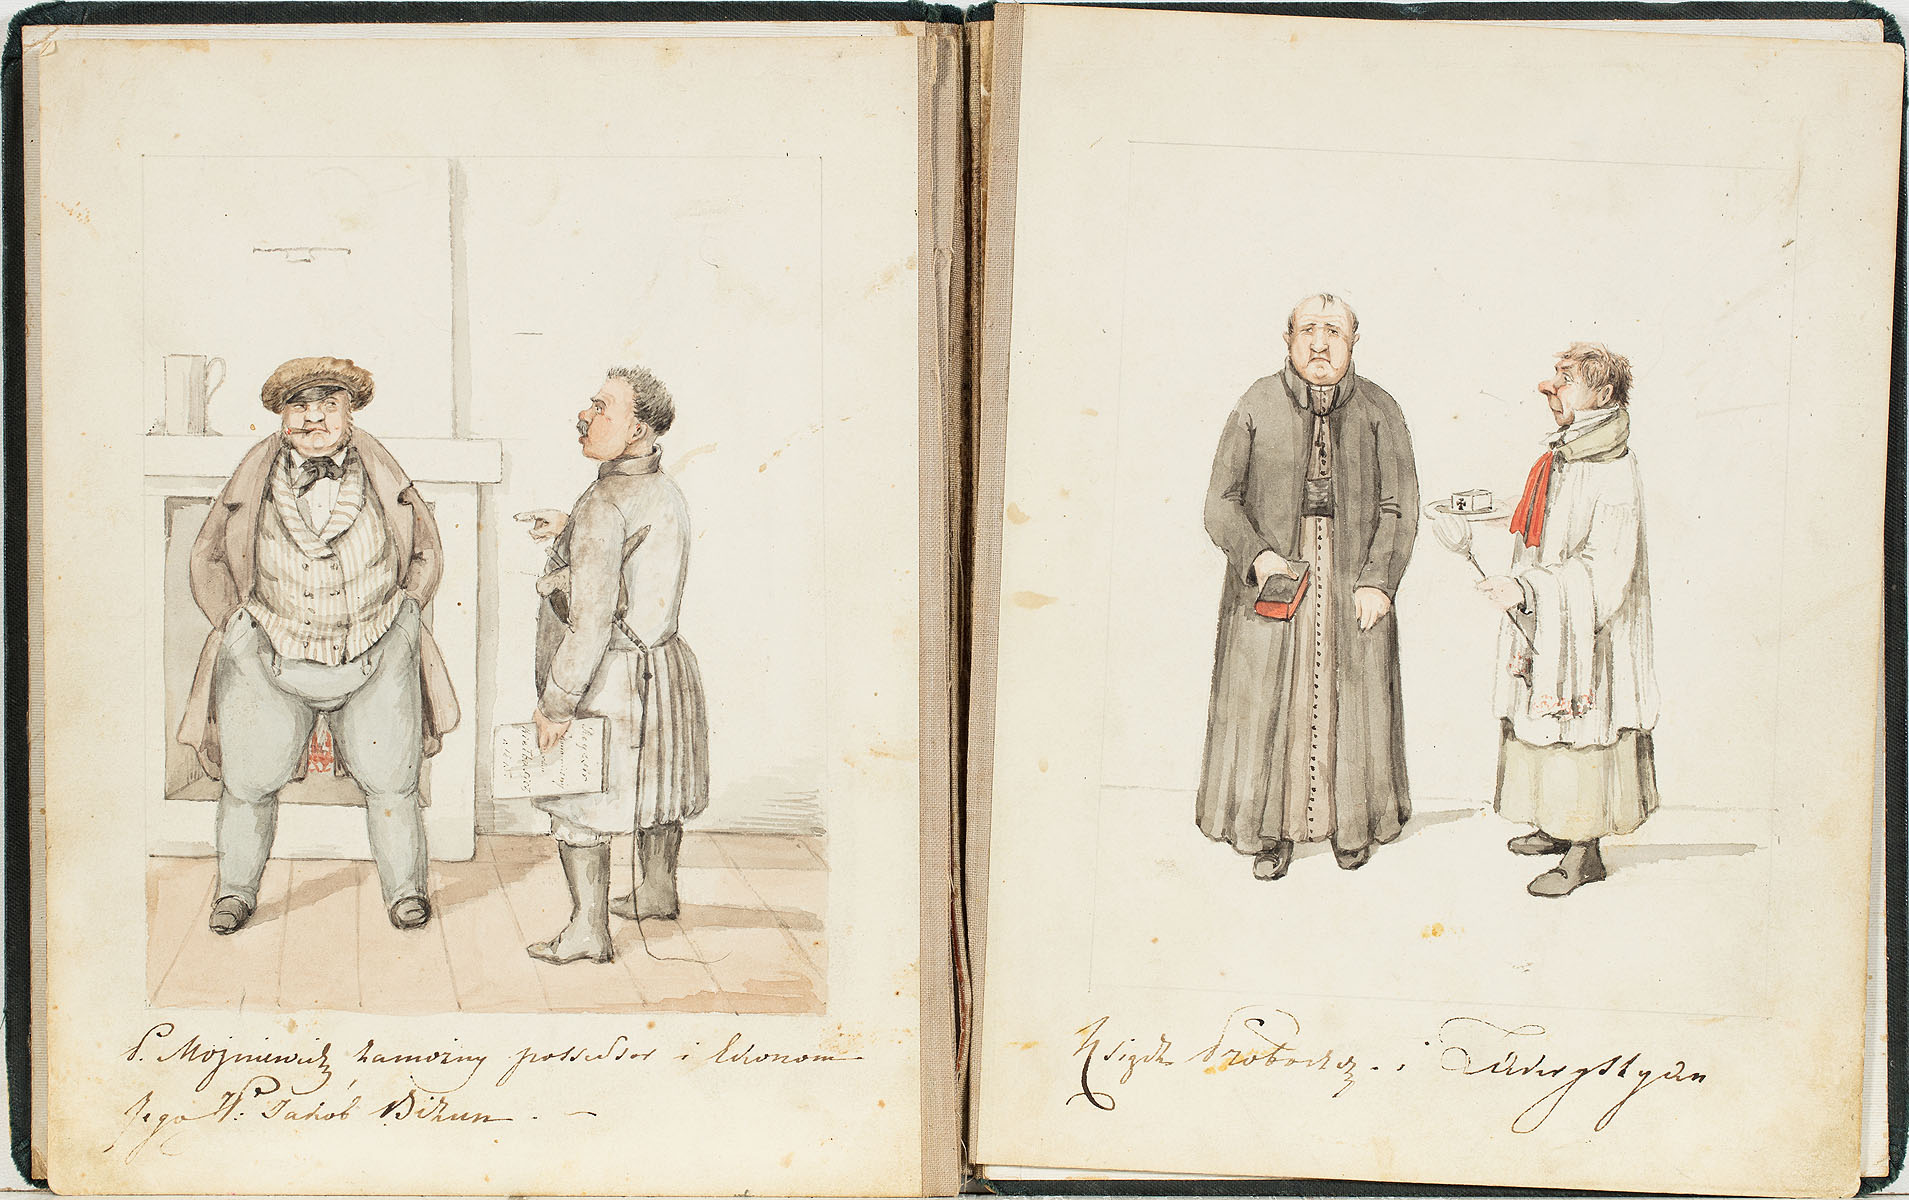 P. Możniewicz zamożny possessor i Ekonom
Jego W: Jakób Bizun. —
Ksiądz Proboszcz. i Zakrystyan